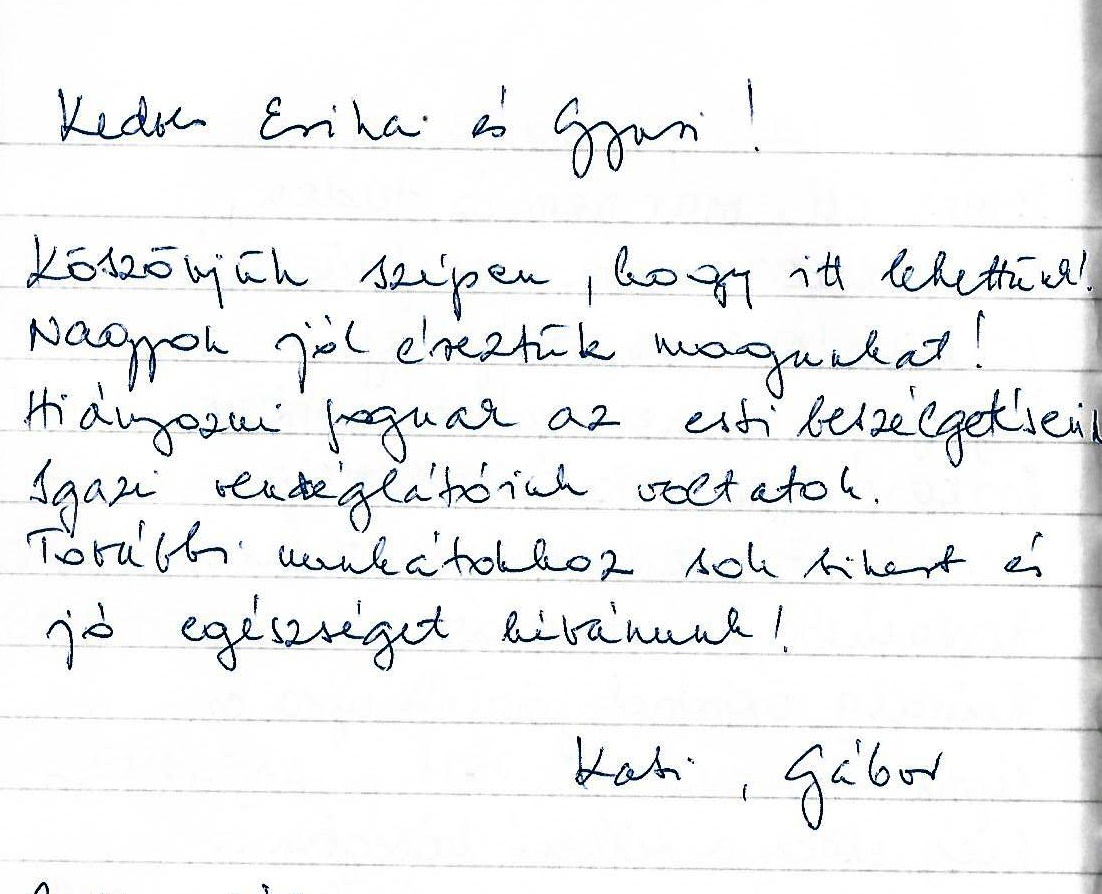 Kedves Erika és Gyuri!
Köszönjük szépen, hogy itt lehettünk!
Nagyon jól éreztük magunkat!
Hiányozni fognak az esti beszélgetések
Igazi vendéglátóink voltatok.
További munkátokhoz sok sikert és
jó egészséget kívánunk!
Kati, Gábor